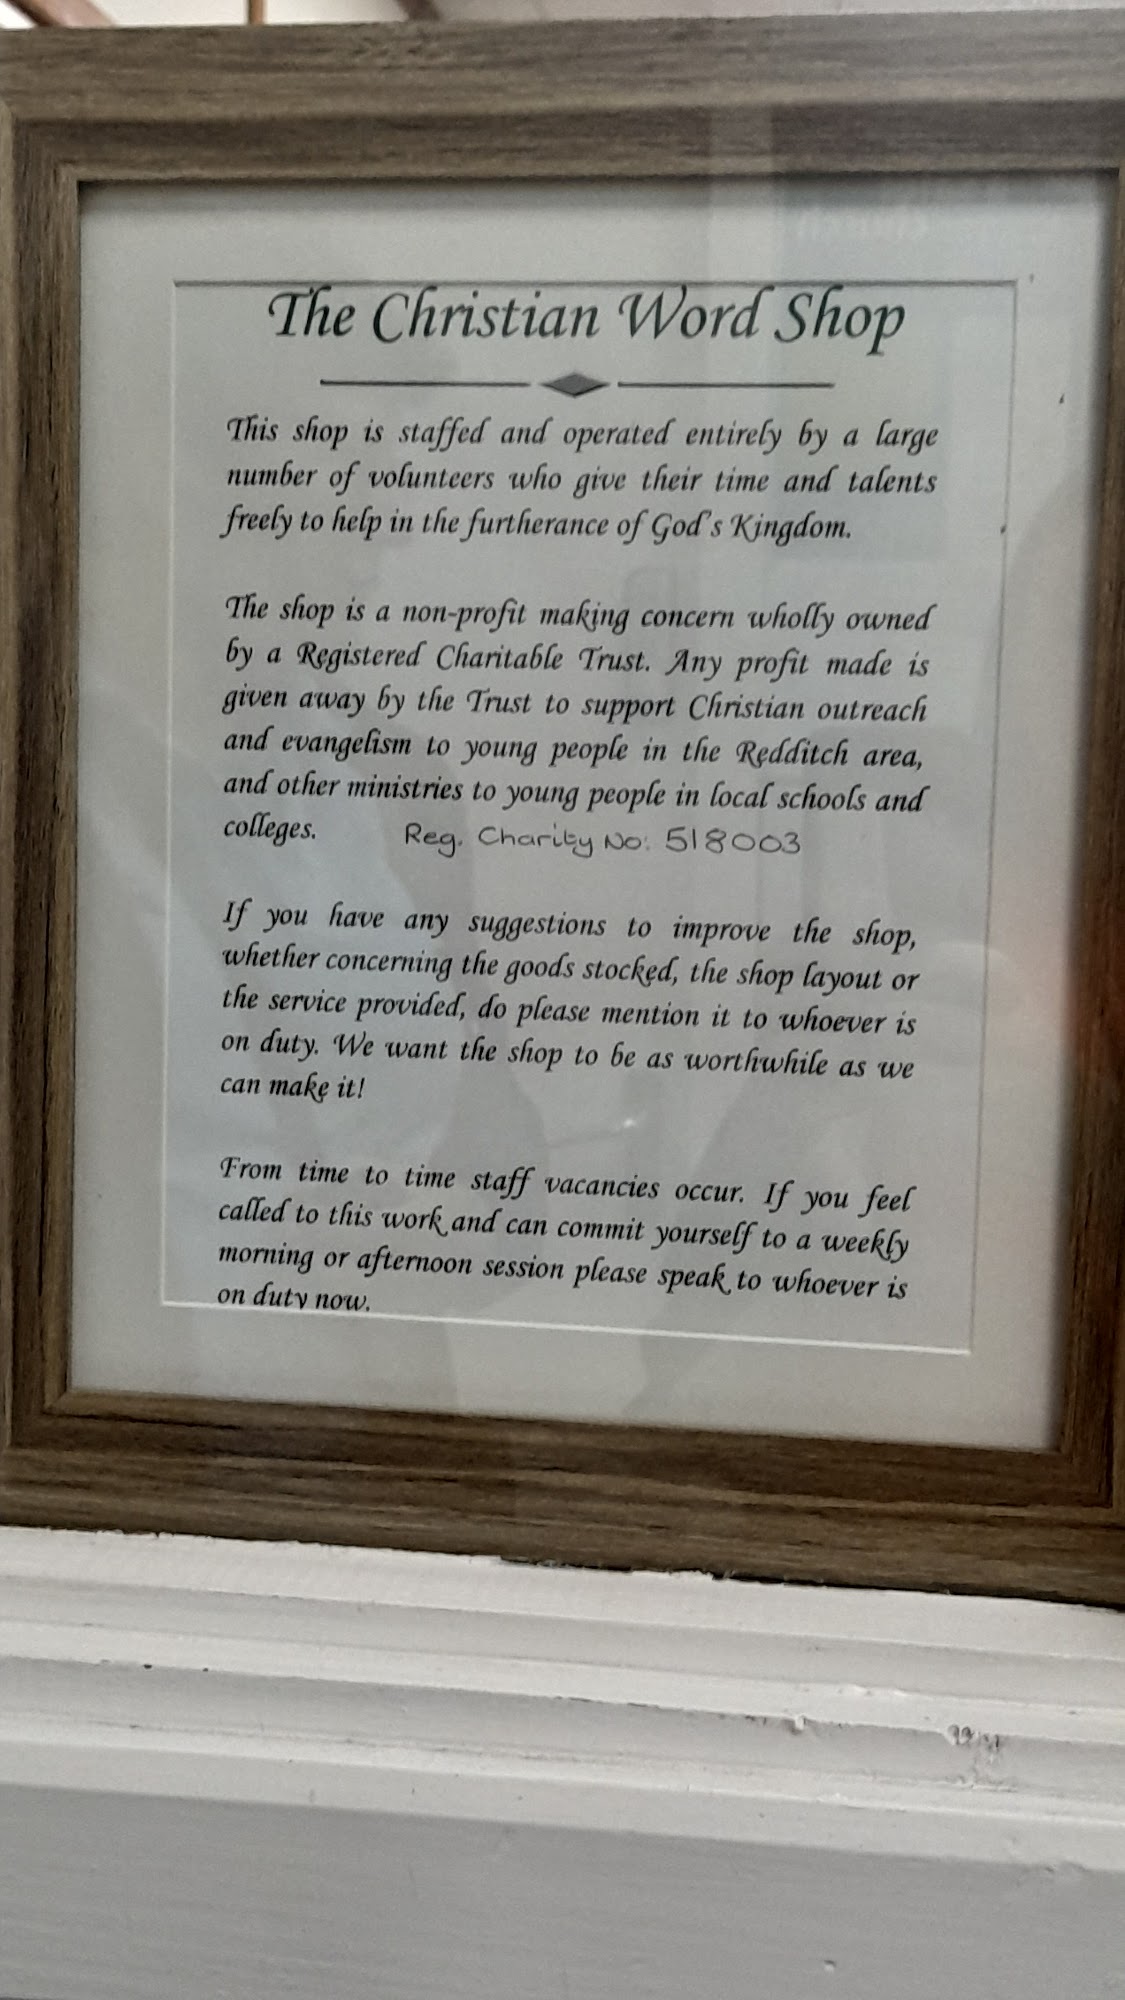 The Christian Word Shop
This shop is staffed and operated entirely by a large
number of volunteers who give their time and talents
freely to help in the furtherance of God's Kingdom.
The shop is a non-profit making concern wholly owned
by a Registered Charitable Trust. Any profit made is
given away by the Trust to support Christian outreach
and evangelism to young people in the Redditch area,
and other ministries to young people in local schools and
colleges. Reg. Charity No: 518003
If you have any suggestions to improve the shop,
whether concerning the goods stocked, the shop layout or
the service provided, do please mention it to whoever is
on duty. We want the shop to be as worthwhile as we
can make it!
From time to time staff vacancies occur. If you feel
called to this work and can commit yourself to a weekly
morning or afternoon session please speak to whoever is
on duty now.